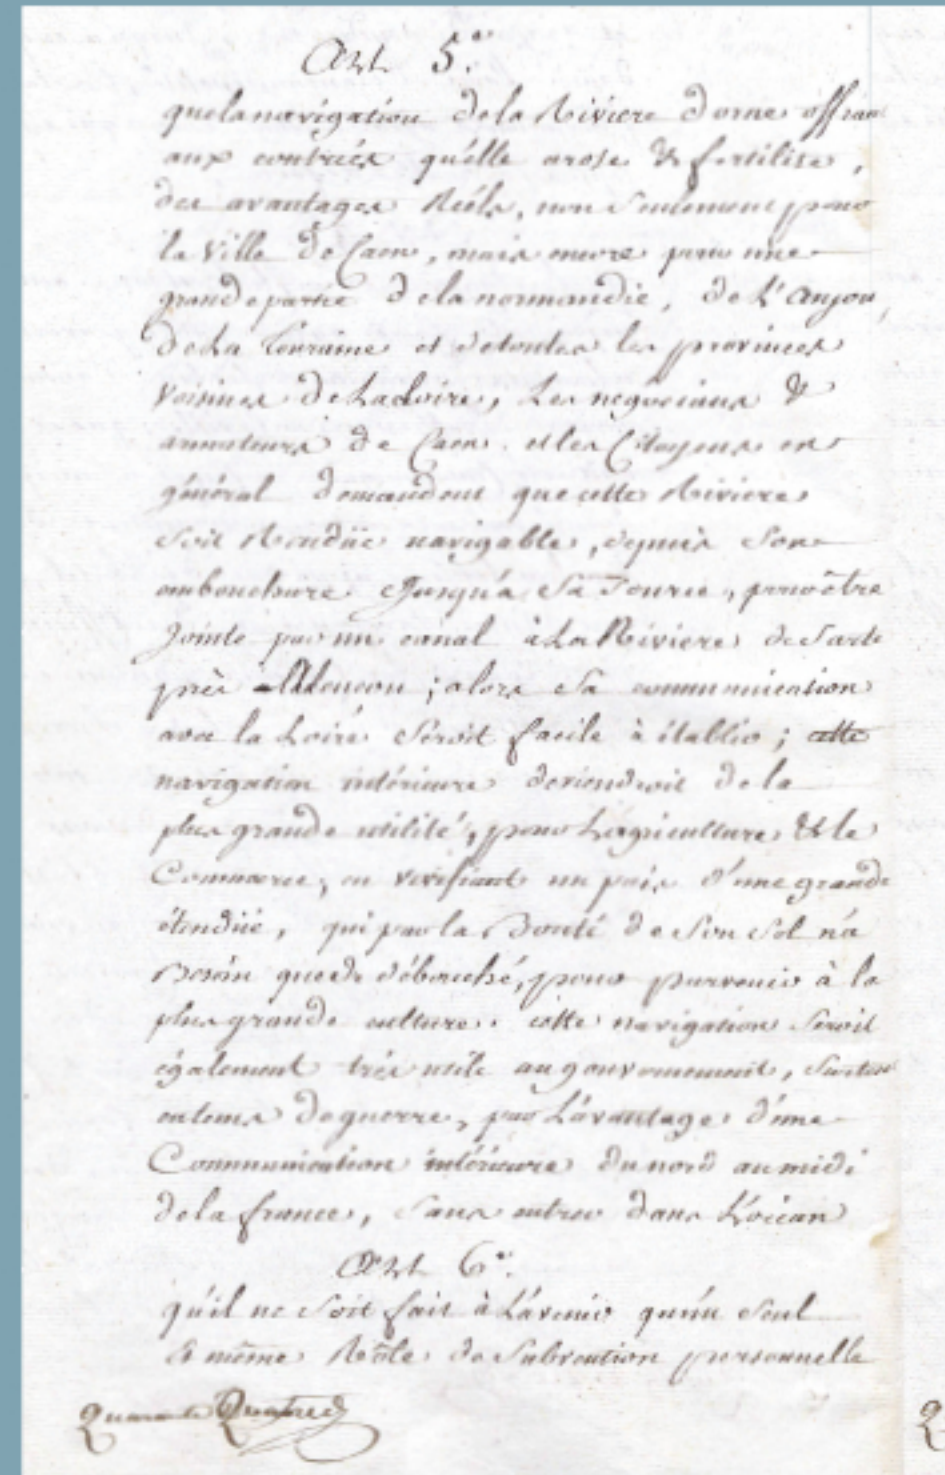 Art 5.e
que la navigation de la Riviere d'orne offrant
aux contrées qu'elle arose & fertilise,
des avantages Réels, non Seulement pour
la Ville de Caen, mais encore pour une
grande partie de la normandie, de L'Anjou,
de La Touraine et de toutes les provinces
Voisines de La Loire, Les negocians &
armateurs de Caen. et les Citoyens en
général demandent que cette Riviere
Soit Rendüe navigable, depuis Son
embouchure Jusqu'á Sa Source, pour être
Jointe par un canal à La Riviere de Sarte
près Alencon ; alors Sa communication
avec la Loire Seroit facile à établir ; cette
navigation intérieure deviendroit de la
plus grande utilité, pour L'agriculture & le
Commerce, en vivifiant un païs d'une grande
étendüe, qui par la Bonté de Son Sol n'á
Besoin que de débouché, pour parvenir à la
plus grande culture. cette navigation Seroit
également très utile au gouvernement, Surtout
en tems de guerre, par L'avantage d'une
Communication intérieure du nord au midi
de la france, Sans entrer dans L'océan
Art 6.e
qu'il ne Soit fait à L'avenir qu'un Seul
& même Rôle de Subvention personnelle
Quarante Quatre